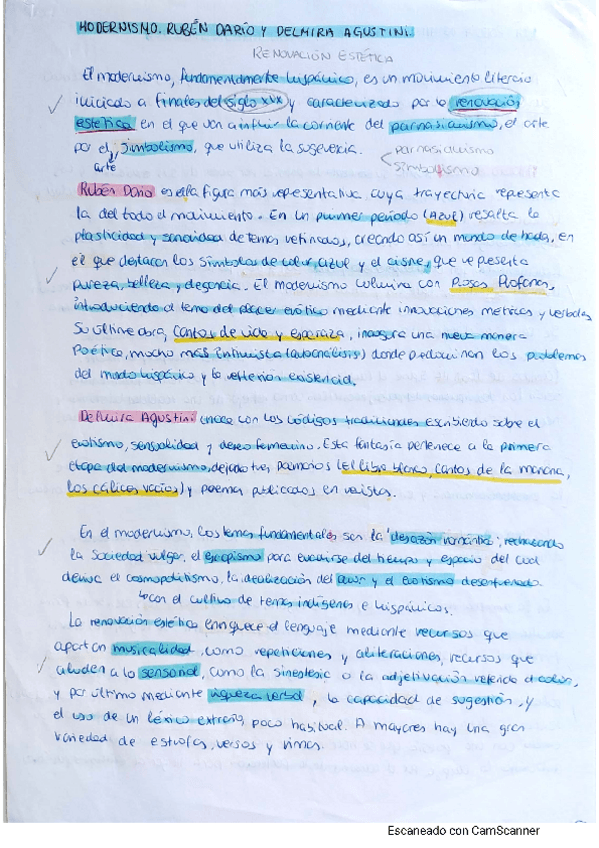 MODERNISMO. RUBÉN DARÍO Y DELMIRA AGUSTINI.
RENOVACIÓN ESTÉTICA
El modernismo, fundamentalmente hispánico, es un movimiento literario
iniciado a finales del siglo XIX y caracterizado por la renovación
estética en el que van a influir la corriente del parnasianismo, el arte
por el arte, simbolismo, que utiliza la sugerencia.
parnasianismo
simbolismo
Rubén Darío es ella figura más representativa, cuya trayectoria representa
la del todo el movimiento. En un primer periodo (AZUL) resalta la
plasticidad y sonoridad de temas refinados, creando así un mundo de hadas, en
el que destacan los símbolos de color azul y el cisne, que representa
pureza, belleza y elegancia. El modernismo culmina con Prosas Profanas,
introduciendo el tema del placer erótico mediante innovaciones métricas y verbales
Su última obra, Cantos de vida y esperanza, inaugura una nueva manera
Poética, mucho más intimista (autoanálisis) donde predominan los problemas
del mundo hispánico y la reflexión existencial.
Delmira Agustini rompe con los códigos tradicionales escribiendo sobre el
erotismo, sensualidad y deseo femenino. Esta fantasía pertenece a la primera
etapa del modernismo, dejando tres poemarios (el libro blanco, Cantos de la mañana,
los cálices vacíos) y poemas publicados en revistas.
En el modernismo, los temas fundamentales son la "desazón romántica", rechazando
la sociedad vulgar, el escapismo para evadirse del tiempo y espacio del cual
deriva el cosmopolitismo, la idealización del amor y el erotismo desenfrenado.
con el cultivo de temas indígenas e hispánicos.
La renovación estética enriquece el lenguaje mediante recursos que
aportan musicalidad, como repeticiones y aliteraciones, recursos que
aluden a lo sensorial, como la sinestesia o la adjetivación referida al color,
y por último mediante riqueza verbal, la capacidad de sugestión, y
el uso de un léxico extraño, poco habitual. A mayores hay una gran
variedad de estrofas, versos y rimas.
Escaneado con CamScanner